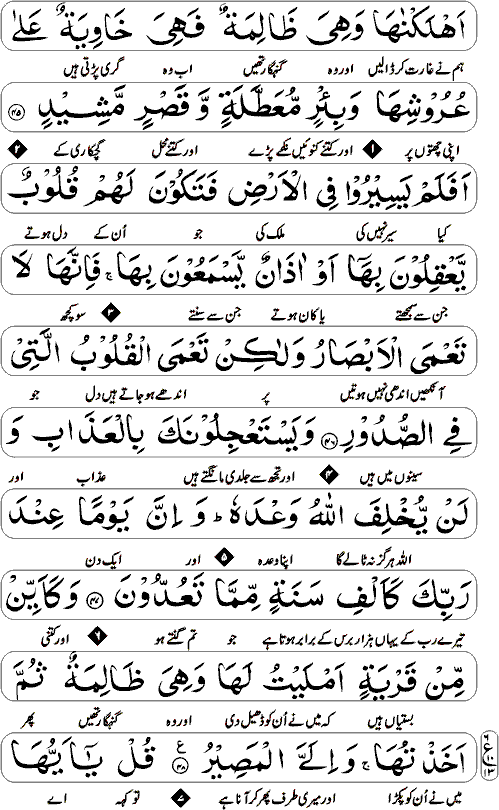 اَهْلَكْنٰهَا وَهِیَ ظَالِمَةٌ فَهِیَ خَاوِیَةٌ عَلٰی
ہم نے غارت کر ڈالیں اور وہ گنہگار تھیں اب وہ گری پڑتی ہیں
عُرُوْشِهَا وَبِئْرٍ مُّعَطَّلَةٍ وَّ قَصْرٍ مَّشِیْدٍ ۴۵
اپنی چھتوں پر ۱ اور کتنے کنوئیں نکمے پڑے اور کتنے محل گچکاری کے ۲
اَفَلَمْ یَسِیْرُوْا فِی الْاَرْضِ فَتَكُوْنَ لَهُمْ قُلُوْبٌ
کیا سیر نہیں کی ملک کی جو اُن کے دل ہوتے
یَّعْقِلُوْنَ بِهَاۤ اَوْ اٰذَانٌ یَّسْمَعُوْنَ بِهَا ۚ فَاِنَّهَا لَا
جن سے سمجھتے یا کان ہوتے جن سے سنتے ۳ سو کچھ
تَعْمَی الْاَبْصَارُ وَلٰكِنْ تَعْمَی الْقُلُوْبُ الَّتِیْ
آنکھیں اندھی نہیں ہوتیں پر اندھے ہو جاتے ہیں دل جو
فِی الصُّدُوْرِ ۴۶ وَیَسْتَعْجِلُوْنَكَ بِالْعَذَابِ وَ
سینوں میں ہیں ۴ اور تجھ سے جلدی مانگتے ہیں عذاب اور
لَنْ یُّخْلِفَ اللّٰهُ وَعْدَهٗ ؕ وَ اِنَّ یَوْمًا عِنْدَ
اللہ ہرگز نہ ٹالے گا اپنا وعدہ ۵ اور ایک دن
رَبِّكَ كَاَلْفِ سَنَةٍ مِّمَّا تَعُدُّوْنَ ۴۷ وَكَاَیِّنْ
تیرے رب کے یہاں ہزار برس کے برابر ہوتا ہے جو تم گنتے ہو ۶ اور کتنی
مِّنْ قَرْیَةٍ اَمْلَیْتُ لَهَا وَهِیَ ظَالِمَةٌ ثُمَّ
بستیاں ہیں کہ میں نے اُن کو ڈھیل دی اور وہ گنہگار تھیں پھر
اَخَذْتُهَا ۚ وَ اِلَیَّ الْمَصِیْرُ ۴۸ ع قُلْ یٰۤاَیُّهَا
میں نے اُن کو پکڑا اور میری طرف پھر کر آنا ہے ۷ تو کہہ اے
۶
ع
۱۰
۱۳